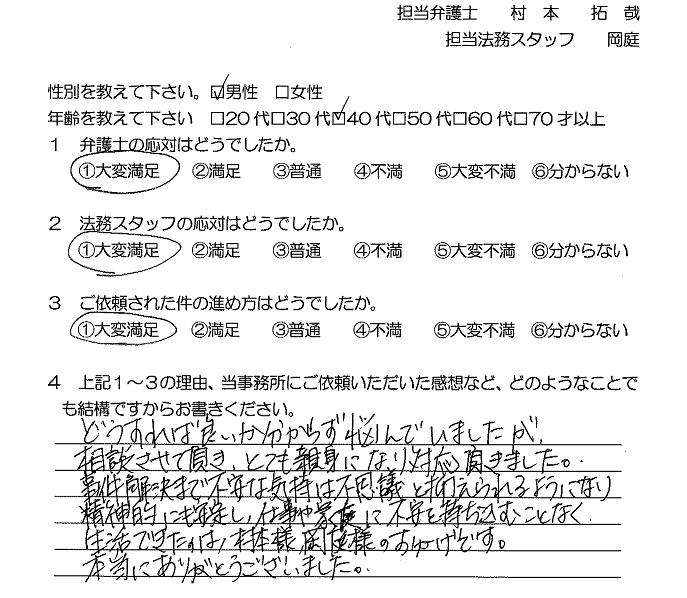 担当弁護士　村　本　拓　哉
担当法務スタッフ　岡庭
性別を教えて下さい。☑男性　□女性
年齢を教えて下さい　□20代□30代☑40代□50代□60代□70才以上
1　弁護士の応対はどうでしたか。
①大変満足　②満足　③普通　④不満　⑤大変不満　⑥分からない
2　法務スタッフの応対はどうでしたか。
①大変満足　②満足　③普通　④不満　⑤大変不満　⑥分からない
3　ご依頼された件の進め方はどうでしたか。
①大変満足　②満足　③普通　④不満　⑤大変不満　⑥分からない
4　上記1～3の理由、当事務所にご依頼いただいた感想など、どのようなことで
も結構ですからお書きください。
どうすれば良いか分からず悩んでいましたが、
相談させて頂き、とても親身になり対応頂きました。
事件解決まで不安な気持は不思議と抑えられるようになり
精神的にも安定し、仕事や家庭に不安を持ち込むことなく
生活できたのは、村本様、岡庭様のおかげです。
本当にありがとうございました。